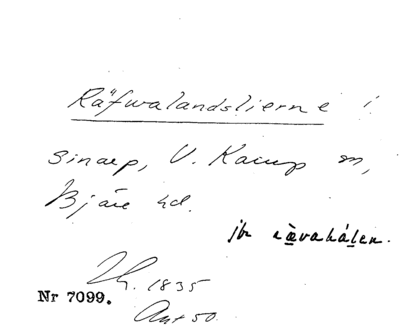 Räfwalandslierne i
Sinarp, V. Karup sn,
Bjäre hd.
jfr rävahálen.
1835
Nr 7099.
Akt 50.